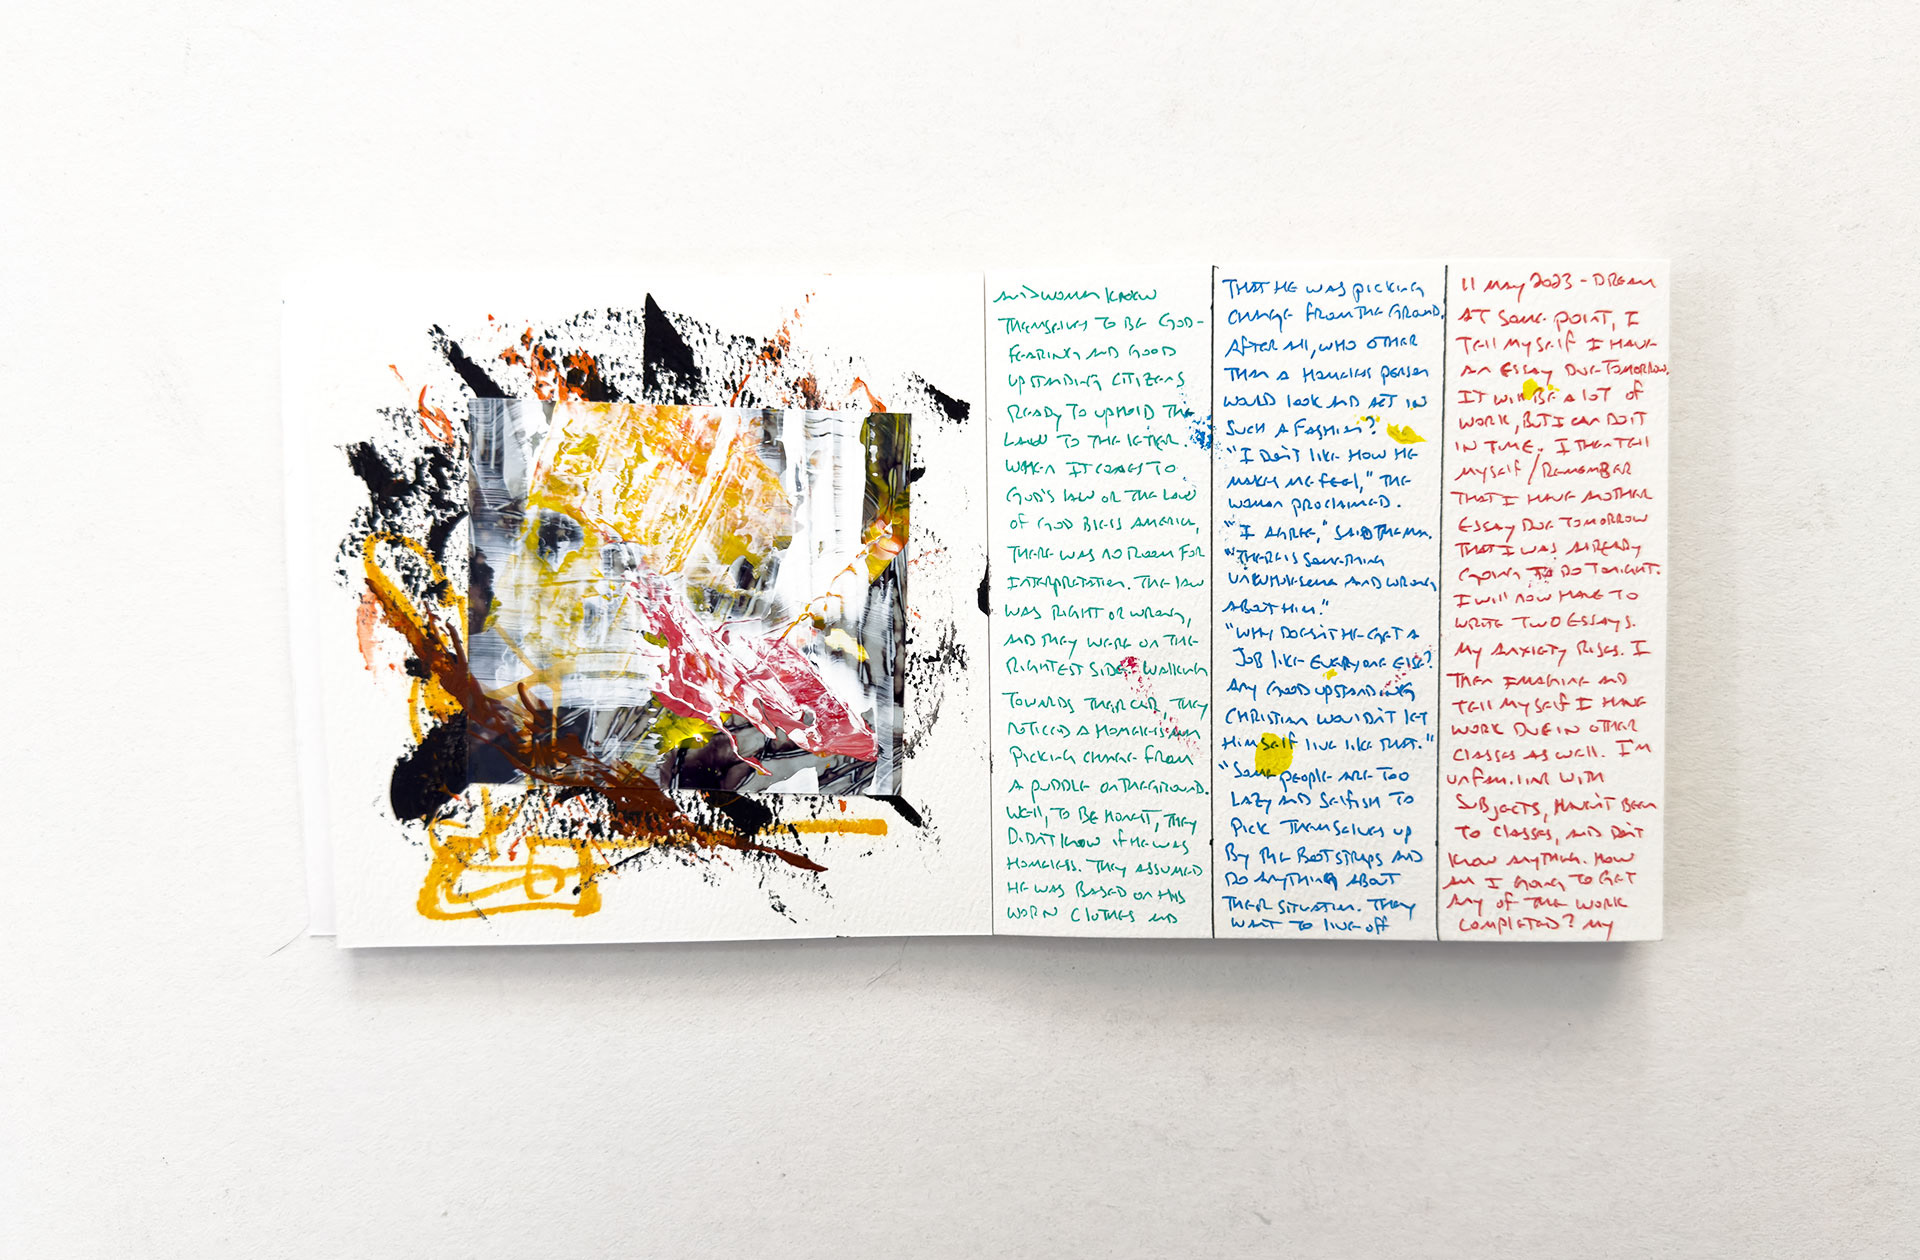 AND WOMAN KNOW
THEMSELVES TO BE GOD-
FEARING AND GOOD
UPSTANDING CITIZENS
READY TO UPHOLD THE
LAW TO THE LETTER.
WHEN IT COMES TO
GOD'S LAW OR THE LAW
OF GOD BLESS AMERICA,
THERE WAS NO ROOM FOR
INTERPRETATION. THE LAW
WAS RIGHT OR WRONG,
AND THEY WERE ON THE
RIGHTEST SIDE. WALKING
TOWARDS THEIR CAR, THEY
NOTICED A HOMELESS MAN
PICKING CHANGE FROM
A PUDDLE ON THE GROUND.
WELL, TO BE HONEST, THEY
DIDN'T KNOW IF HE WAS
HOMELESS. THEY ASSUMED
HE WAS BASED ON HIS
WORN CLOTHES AND
THAT HE WAS PICKING
CHANGE FROM THE GROUND.
AFTER ALL, WHO OTHER
THAN A HOMELESS PERSON
WOULD LOOK AND ACT IN
SUCH A FASHION?
"I DON'T LIKE HOW HE
MAKES ME FEEL," THE
WOMAN PROCLAIMED.
"I AGREE," SAID THE MAN.
"THERE IS SOMETHING
UNWHOLESOME AND WRONG
ABOUT HIM."
"WHY DOESN'T HE GET A
JOB LIKE EVERYONE ELSE?
ANY GOOD UPSTANDING
CHRISTIAN WOULDN'T LET
HIMSELF LIVE LIKE THAT."
"SOME PEOPLE ARE TOO
LAZY AND SELFISH TO
PICK THEMSELVES UP
BY THE BOOTSTRAPS AND
DO ANYTHING ABOUT
THEIR SITUATION. THEY
WANT TO LIVE OFF
11 MAY 2023 - DREAM
AT SOME POINT, I
TELL MYSELF I HAVE
AN ESSAY DUE TOMORROW.
IT WILL BE A LOT OF
WORK, BUT I CAN DO IT
IN TIME. I THEN TELL
MYSELF / REMEMBER
THAT I HAVE ANOTHER
ESSAY DUE TOMORROW
THAT I WAS ALREADY
GOING TO DO TONIGHT.
I WILL NOW HAVE TO
WRITE TWO ESSAYS.
MY ANXIETY RISES. I
THEN IMAGINE AND
TELL MYSELF I HAVE
WORK DUE IN OTHER
CLASSES AS WELL. I'M
UNFAMILIAR WITH
SUBJECTS, HAVEN'T BEEN
TO CLASSES, AND DON'T
KNOW ANYTHING. HOW
AM I GOING TO GET
ANY OF THE WORK
COMPLETED? MY